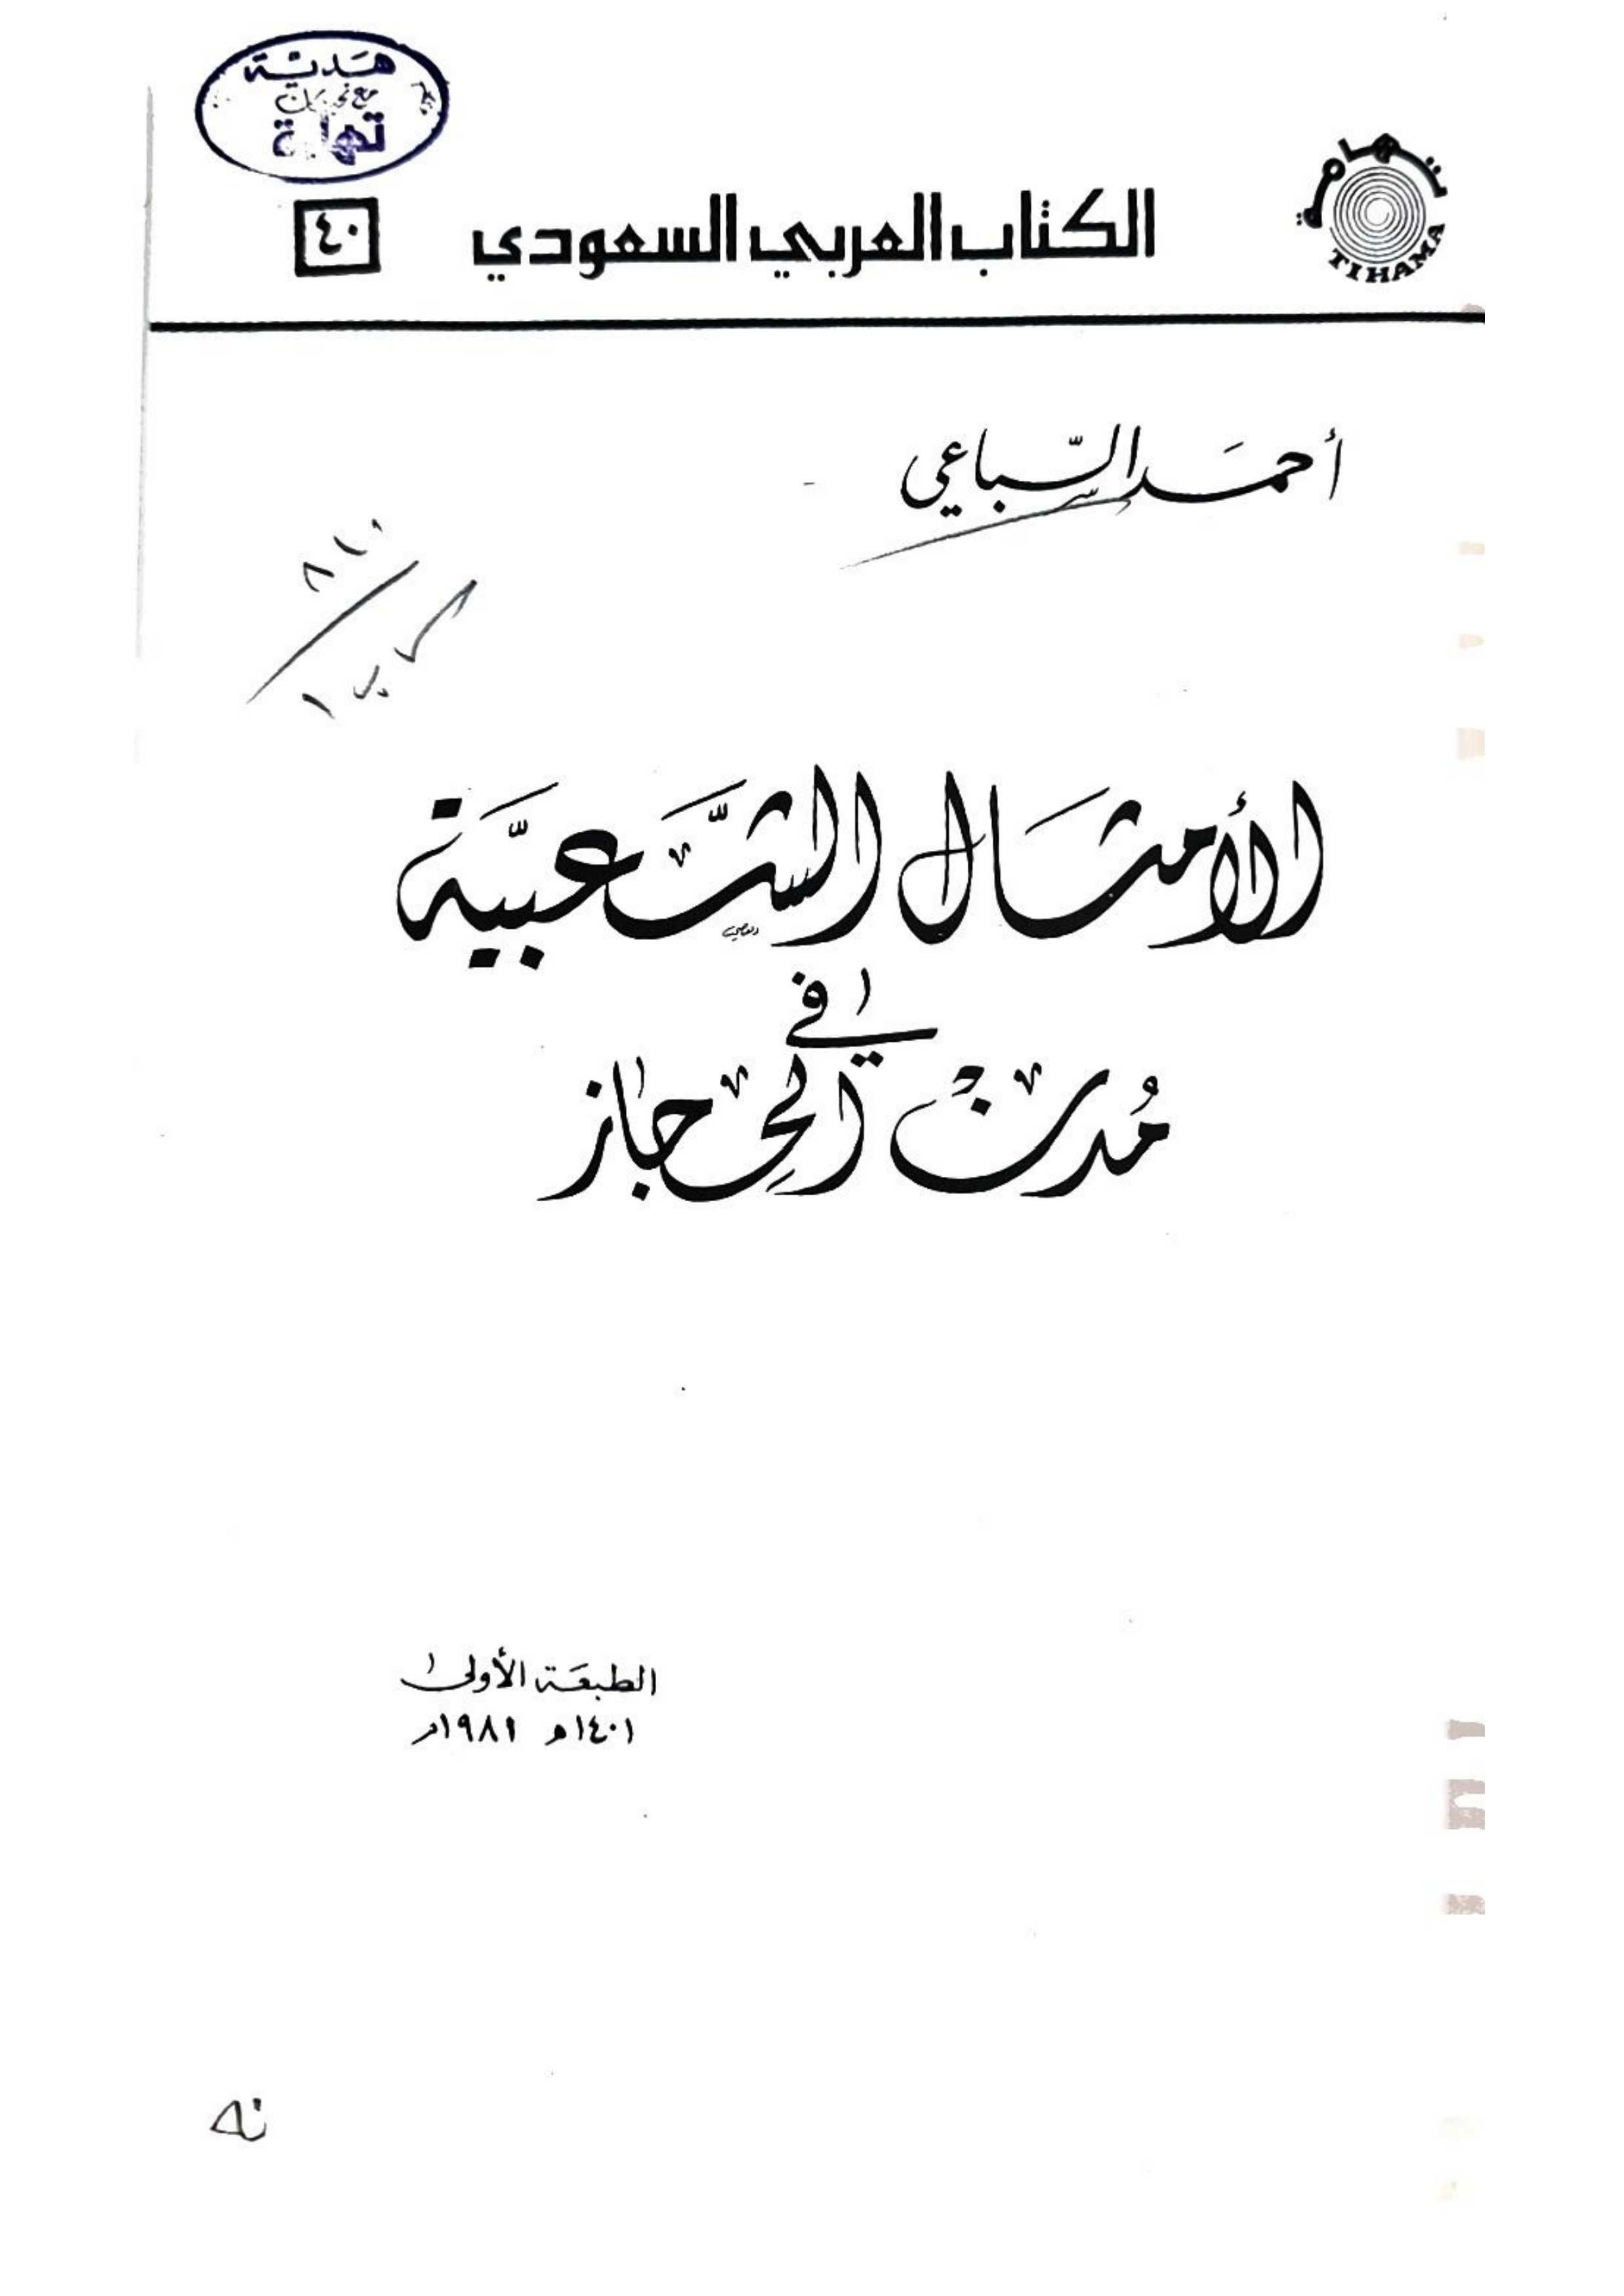 هدية
مع تحيات
تهامة
تهامة
TIHAMA
الكتاب العربي السعودي
٤٠
أحمد السباعي
الأمثال الشعبية
في
مدن الحجاز
الطبعة الأولى
١٤٠١هـ ١٩٨١م